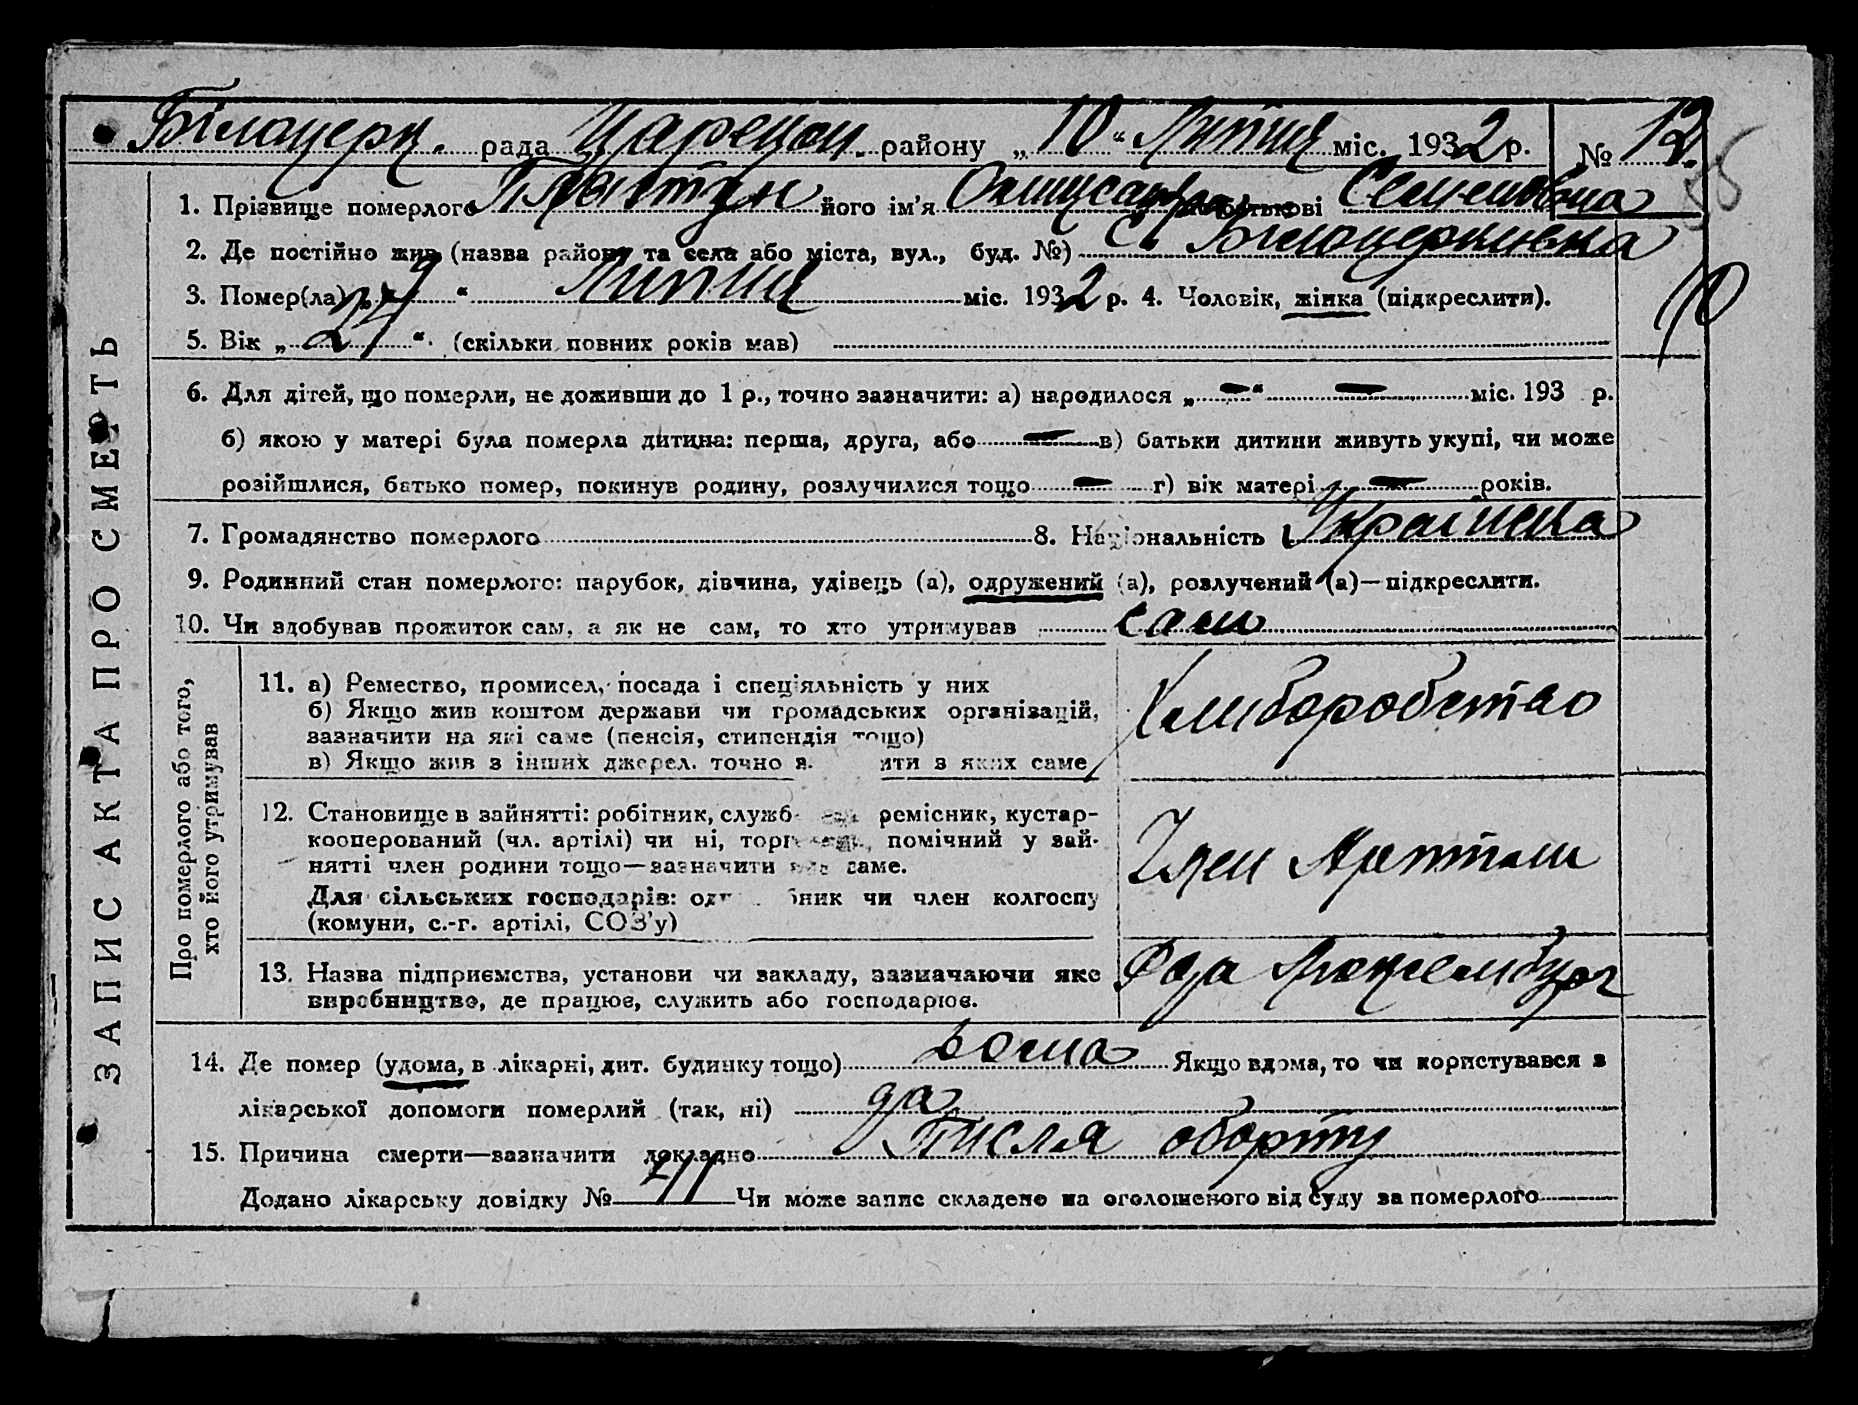 Білоцерк. рада Царечан. району „10“ Липня міс. 1932 р. № 12.
1. Прізвище померлого його ім'я по батькові Семеновна
2. Де постійно жив (назва району та села або міста, вул., буд. №) с. Білоцерківка
3. Помер(ла) „9“ Липня міс. 1932 р. 4. Чоловік, жінка (підкреслити).
10
5. Вік „27“ (скільки повних років мав)
6. Для дітей, що померли, не доживши до 1 р., точно зазначити: а) народилося „—“ — міс. 193 р.
б) якою у матері була померла дитина: перша, друга, або — в) батьки дитини живуть укупі, чи може
розійшлися, батько помер, покинув родину, розлучилися тощо — г) вік матері — років.
7. Громадянство померлого 8. Національність Украінка
9. Родинний стан померлого: парубок, дівчина, удівець (а), одружений (а), розлучений (а)—підкреслити.
10. Чи здобував прожиток сам, а як не сам, то хто утримував сам
ЗАПИС АКТА ПРО СМЕРТЬ
Про померлого або того,
хто його утримував
11. а) Ремество, промисел, посада і спеціяльність у них
б) Якщо жив коштом держави чи громадських організацій,
зазначити на які саме (пенсія, стипендія тощо)
в) Якщо жив з інших джерел, точно з яких саме
Хлиборобство
12. Становище в зайнятті: робітник, ремісник, кустар-
кооперований (чл. артілі) чи ні, помічний у зай-
нятті член родини тощо—зазначити саме.
Для сільських господарів: чи член колгоспу
(комуни, с.-г. артілі, СОЗ'у)
Член Артіли
13. Назва підприємства, установи чи закладу, зазначаючи яке
виробництво, де працює, служить або господарює.
Роза Люксембург
14. Де помер (удома, в лікарні, дит. будинку тощо) вома Якщо вдома, то чи користувався з
лікарської допомоги померлий (так, ні) да
15. Причина смерти—зазначити докладно Писля аборту
Додано лікарську довідку № Чи може запис складено на оголошеного від суду за померлого